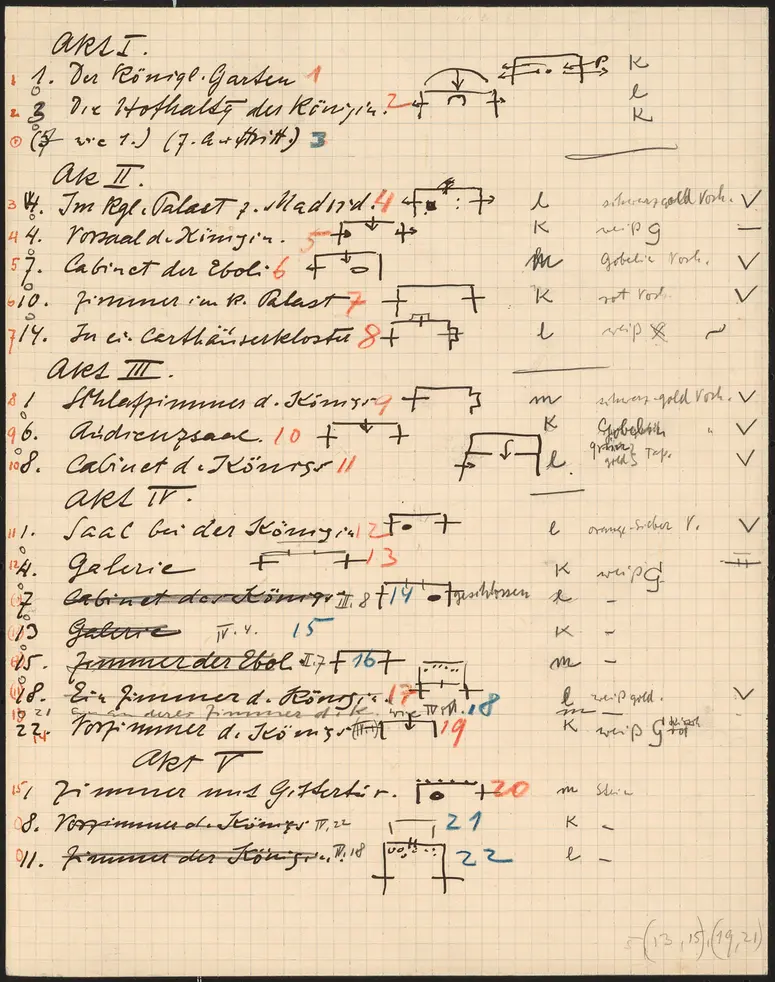 Akt I.
1 1. Der Königl. Garten 1 K
2 3 Die Hofhaltg der Königin. 2 l
(7 wie 1.) (7. Auftritt.) 3 K
Ak II.
3 4. Im Kgl. Palast z. Madrid. 4 l schwarz-gold Vorh. ✓
4 4. Vorsaal d. Königin. 5 K weiß G –
5 7. Cabinet der Eboli 6 m Gobelin Vorh. ✓
6 10. Zimmer im k. Palast 7 K rot Vorh. ✓
7 14. In ei. Carthäuserkloster 8 l weiß
Akt III.
8 1 Schlafzimmer d. Königs 9 m schwarz-gold Vorh. ✓
9 6. Audienzsaal. 10 K Gobelin " ✓
10 8. Cabinet d. Königs 11 l. grün gold Tap. ✓
Akt IV.
11 1. Saal bei der Königin 12 l orange-silber V. ✓
12 4. Galerie 13 K weiß G
7 Cabinet des Königs III. 8 14 geschlossen l –
13 Galerie IV. 4. 15 K –
15. Zimmer der Eboli II. 7 16 m –
18. Ein Zimmer d. Königin. 17 l weiß gold. ✓
21 ein anderes Zimmer d. K. wie 18 m –
14 22. Vorzimmer d. Königs 19 K weiß G
Akt V
15 1 Zimmer mit Gittertür. 20 m Stein
8. Vorzimmer d. Königs IV, 22 21 K –
11. Zimmer der Königin. IV. 18 22 l –
(13, 15), (19, 21)